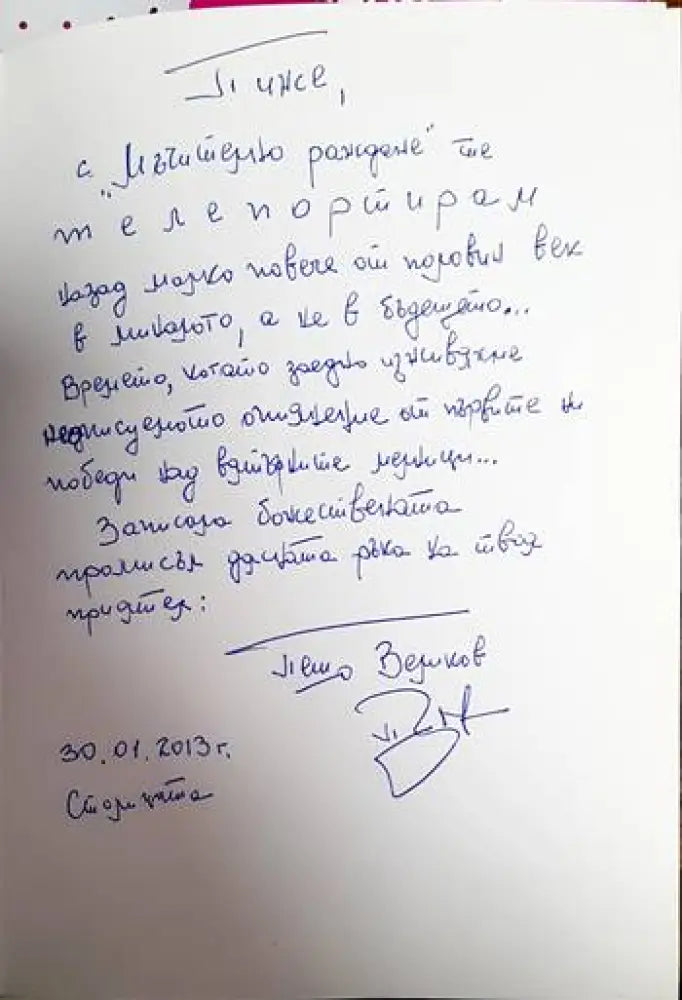 Пиже,
с "Мъчително раждане" те
телепортирам
назад малко повече от половин век
в миналото, а не в бъдещето...
Времето, когато заедно изживяхме
неописуемото опиянение от първите ни
победи над вятърните мелници...
Записала божествената
промисъл дясната ръка на твоя
приятел:
Пешо Великов
30.01.2013 г.
Столицата